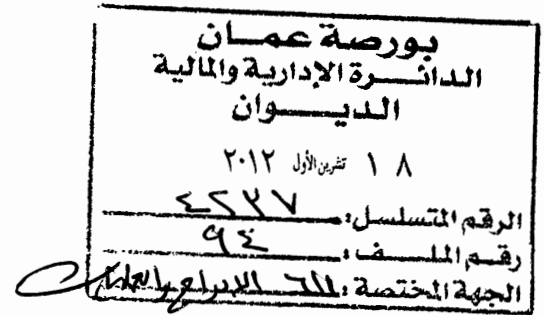 بورصة عمان
الدائرة الإدارية والمالية
الديوان
١٨ تشرين الأول ٢٠١٢
الرقم المتسلسل: ٤٢٣٧
رقم الملف: ٩٤
الجهة المختصة: الإدراج والعمليات